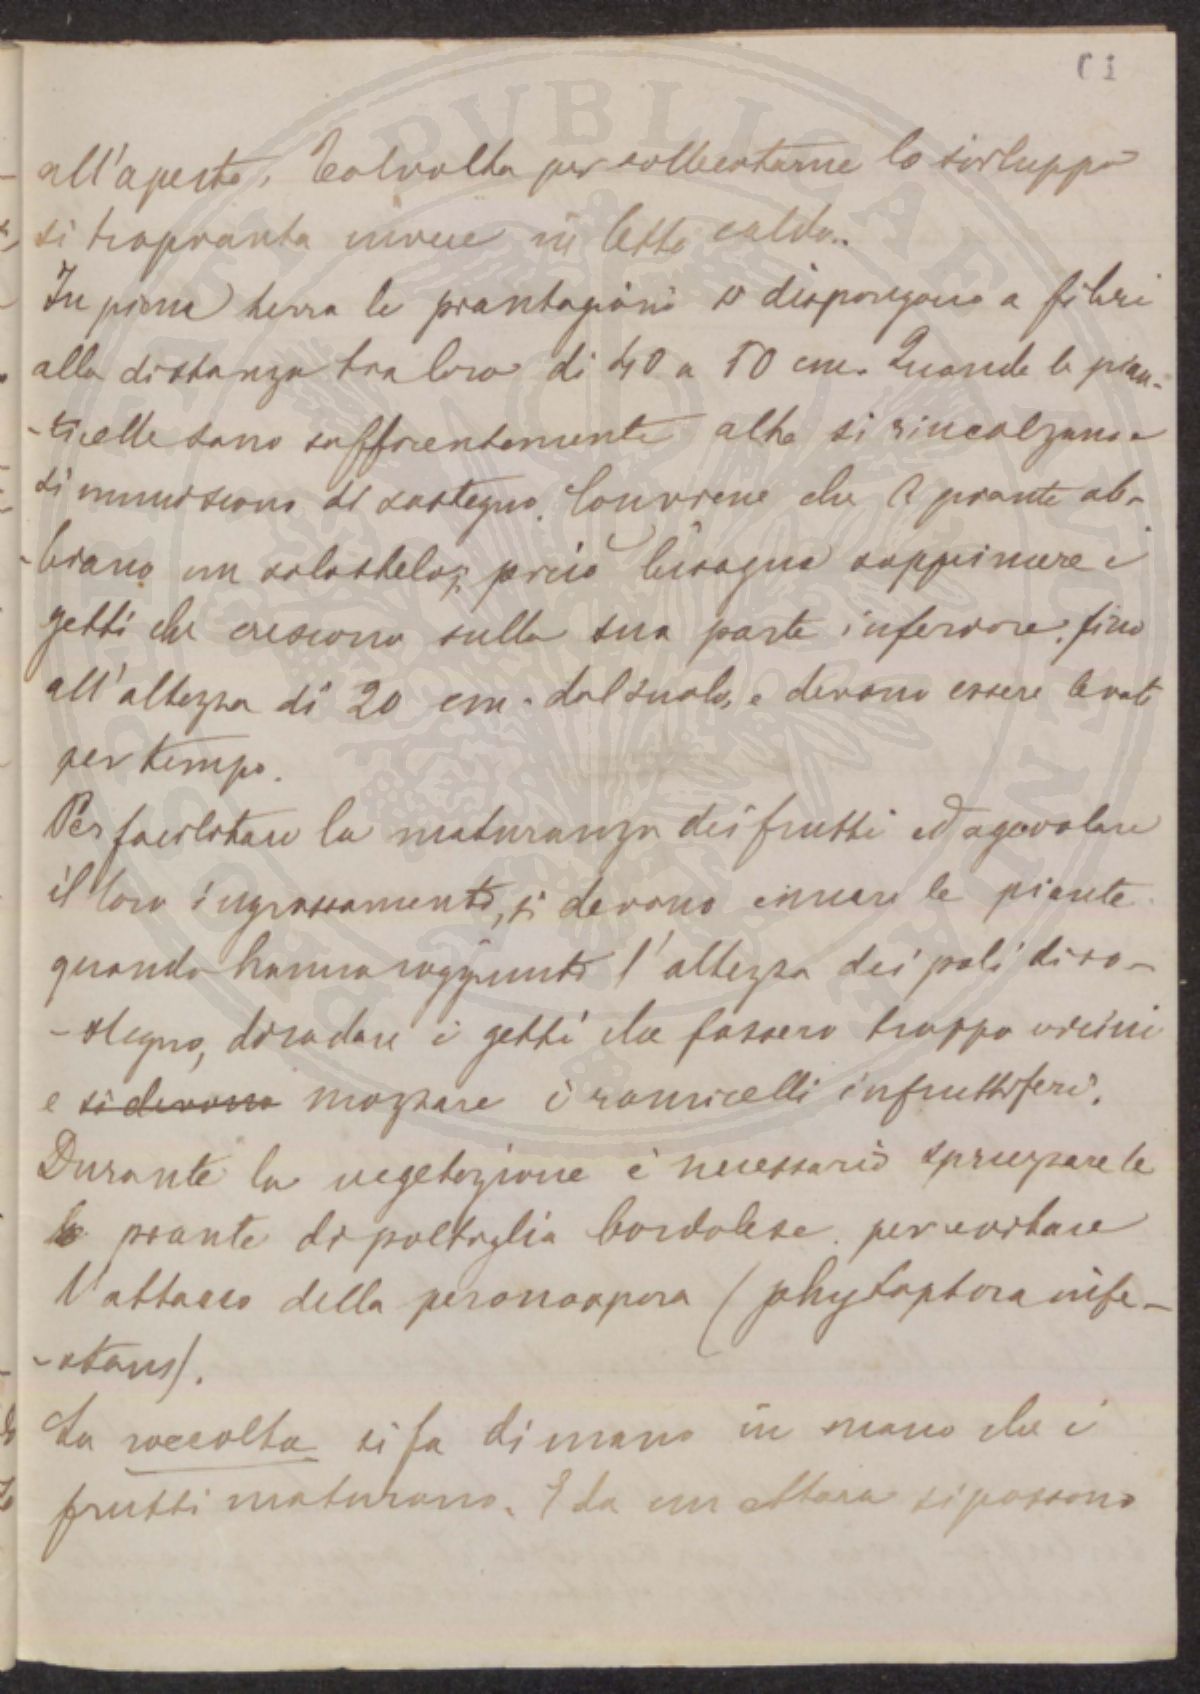 all'aperto. Talvolta per sollecitarne lo sviluppo
si trapianta invece in letto caldo.
In piena terra le piantagioni si dispongono a filari
alla distanza tra loro di 40 a 50 cm. Quando le pian-
-ticelle sono sufficientemente alte si rincalzano e
si muniscono di sostegno. Conviene che le piante ab-
-biano un solo stelo; perciò bisogna sopprimere i
getti che crescono sulla sua parte inferiore, fino
all'altezza di 20 cm. dal suolo, e devono essere levati
per tempo.
Per facilitare la maturanza dei frutti ed agevolare
il loro ingrossamento, si devono cimare le piante
quando hanno raggiunto l'altezza dei pali di so-
-stegno, diradare i getti che fossero troppo vicini
e si devono mozzare i ramicelli infruttiferi.
Durante la vegetazione è necessario spruzzare le
piante di poltiglia bordolese per evitare
l'attacco della peronospora (phytoptora infe-
-stans).
La raccolta si fa di mano in mano che i
frutti maturano. E da un ettara si possono